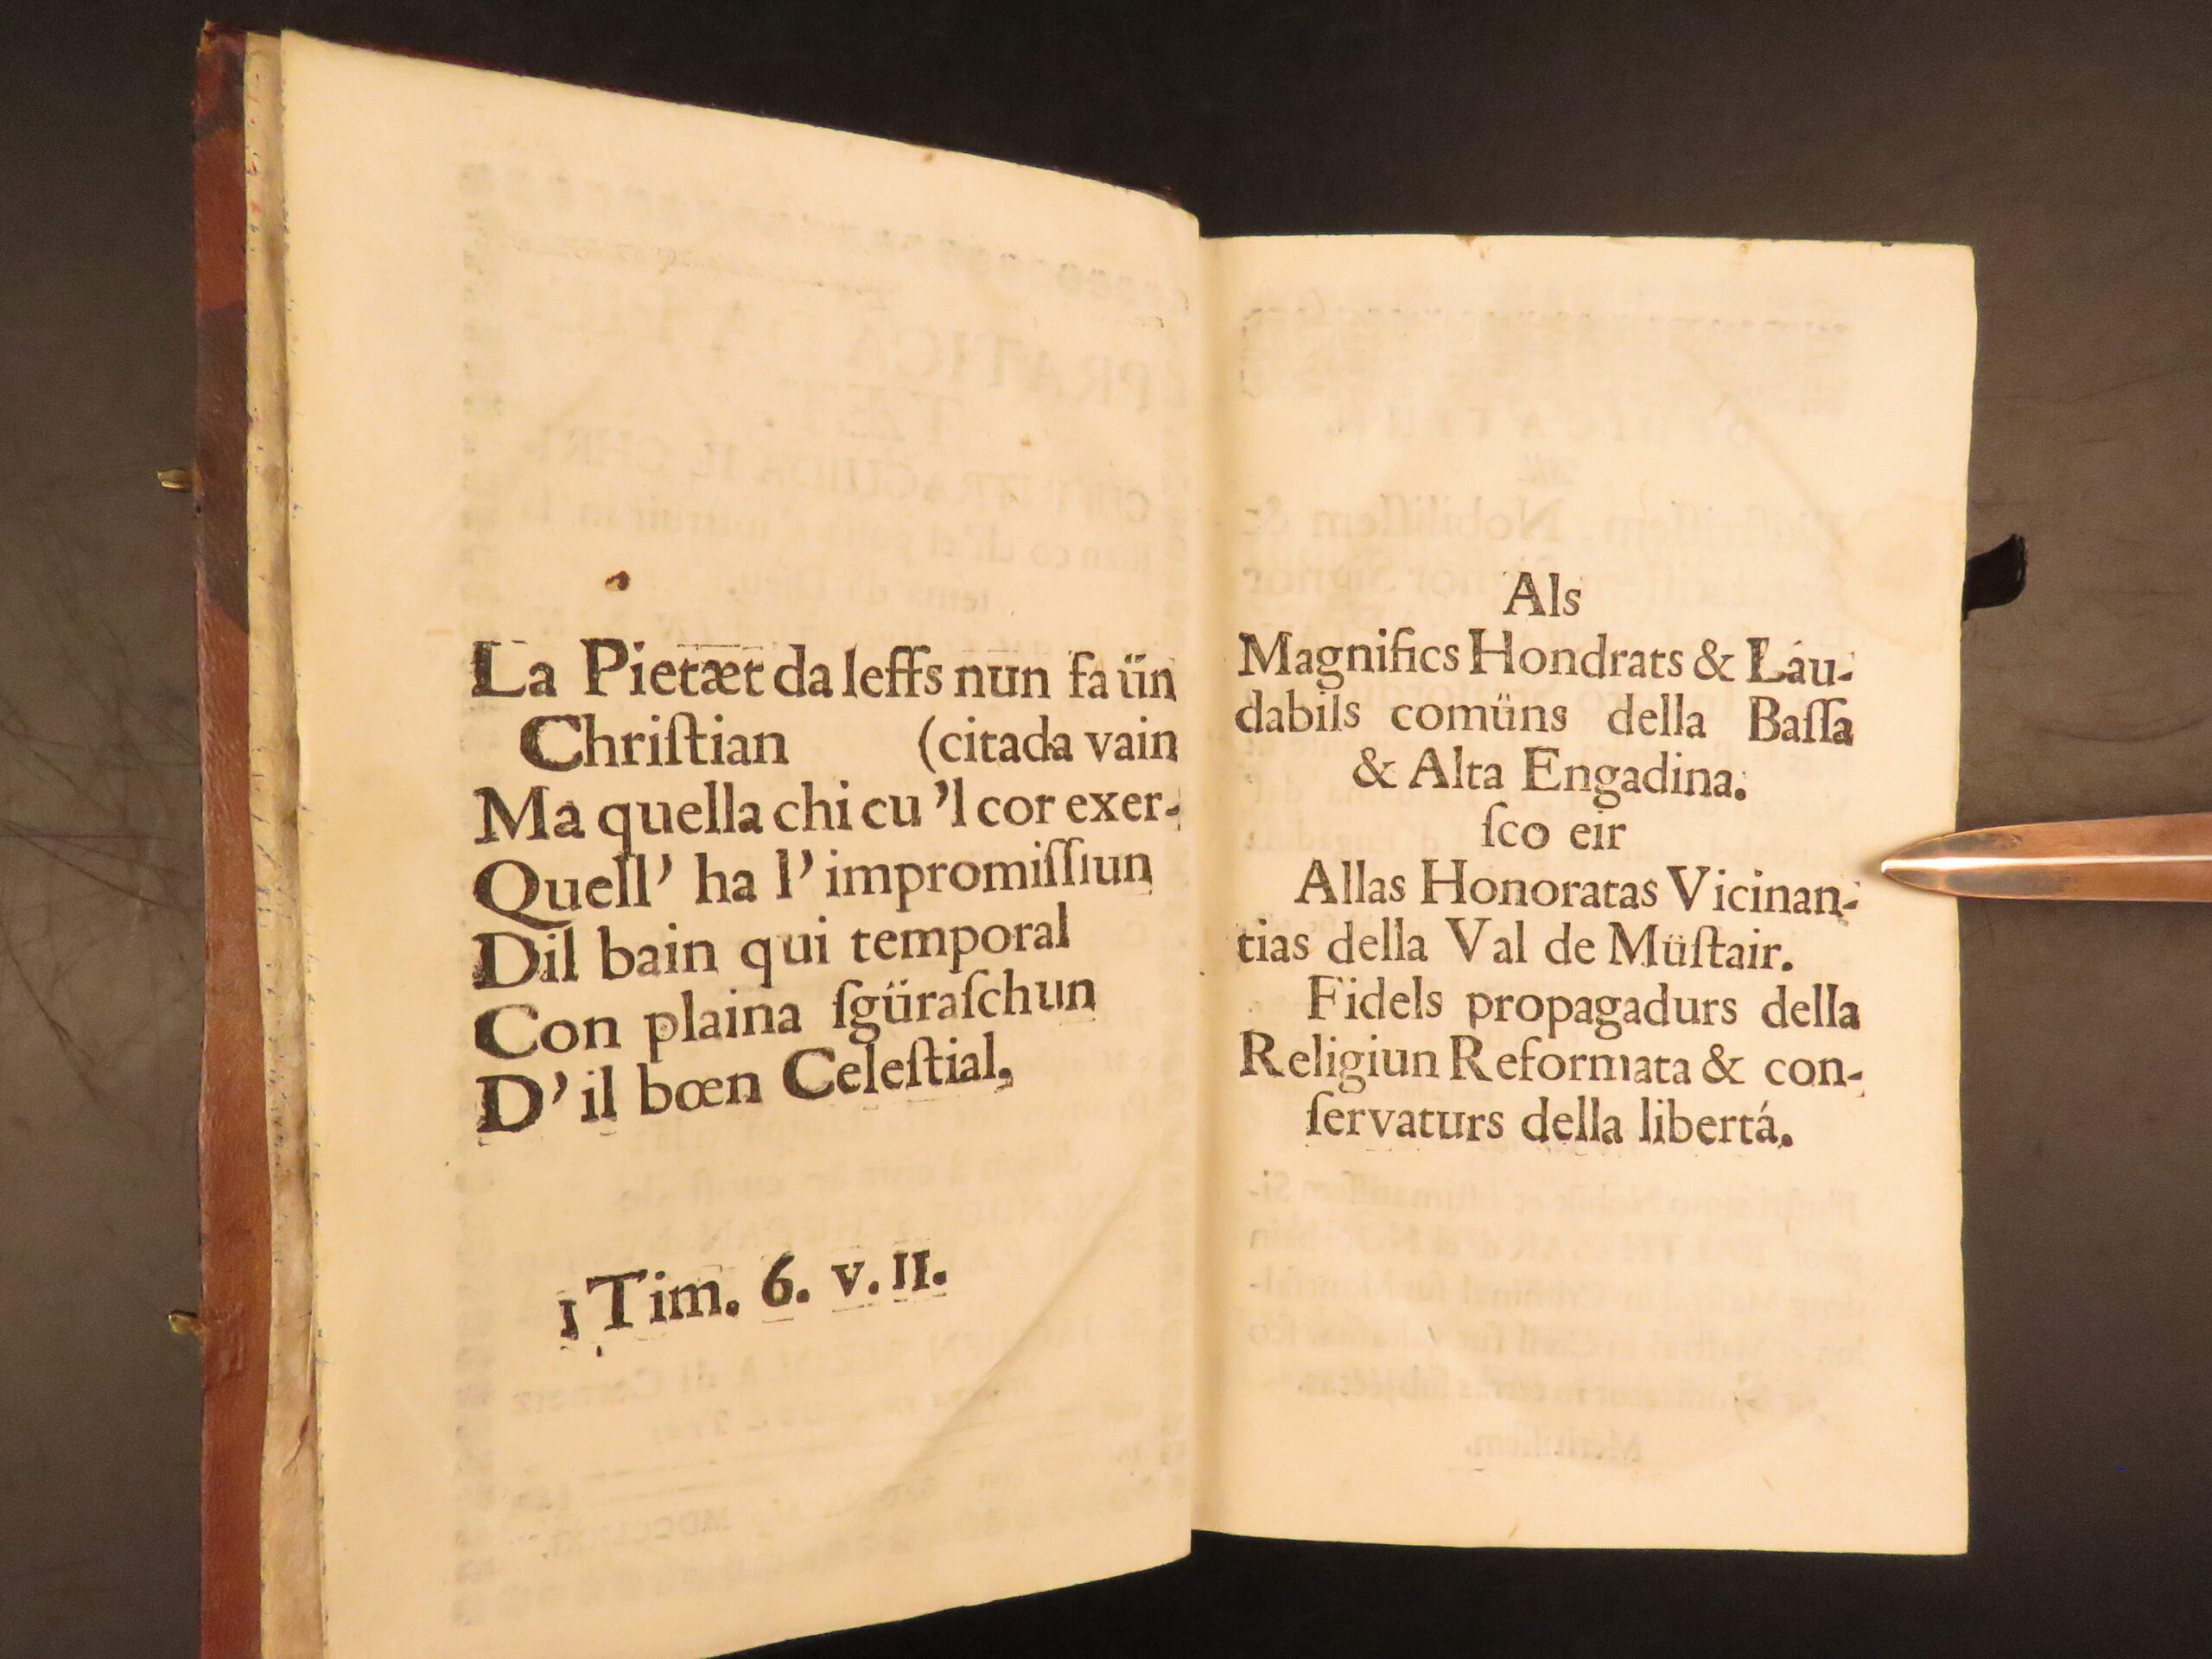 La Pietæt da leffs nun fa ün
Chriſtian (citada vain
Ma quella chi cu 'l cor exer-
Quell' ha l' impromiſſiun
Dil bain qui temporal
Con plaina ſgüraſchun
D' il bœn Celeſtial,
1 Tim. 6. v. II.
Als
Magnifics Hondrats & Lau-
dabils comüns della Baſſa
& Alta Engadina.
ſco eir
Allas Honoratas Vicinan-
tias della Val de Müſtair.
Fidels propagadurs della
Religiun Reformata & con-
ſervaturs della libertá.